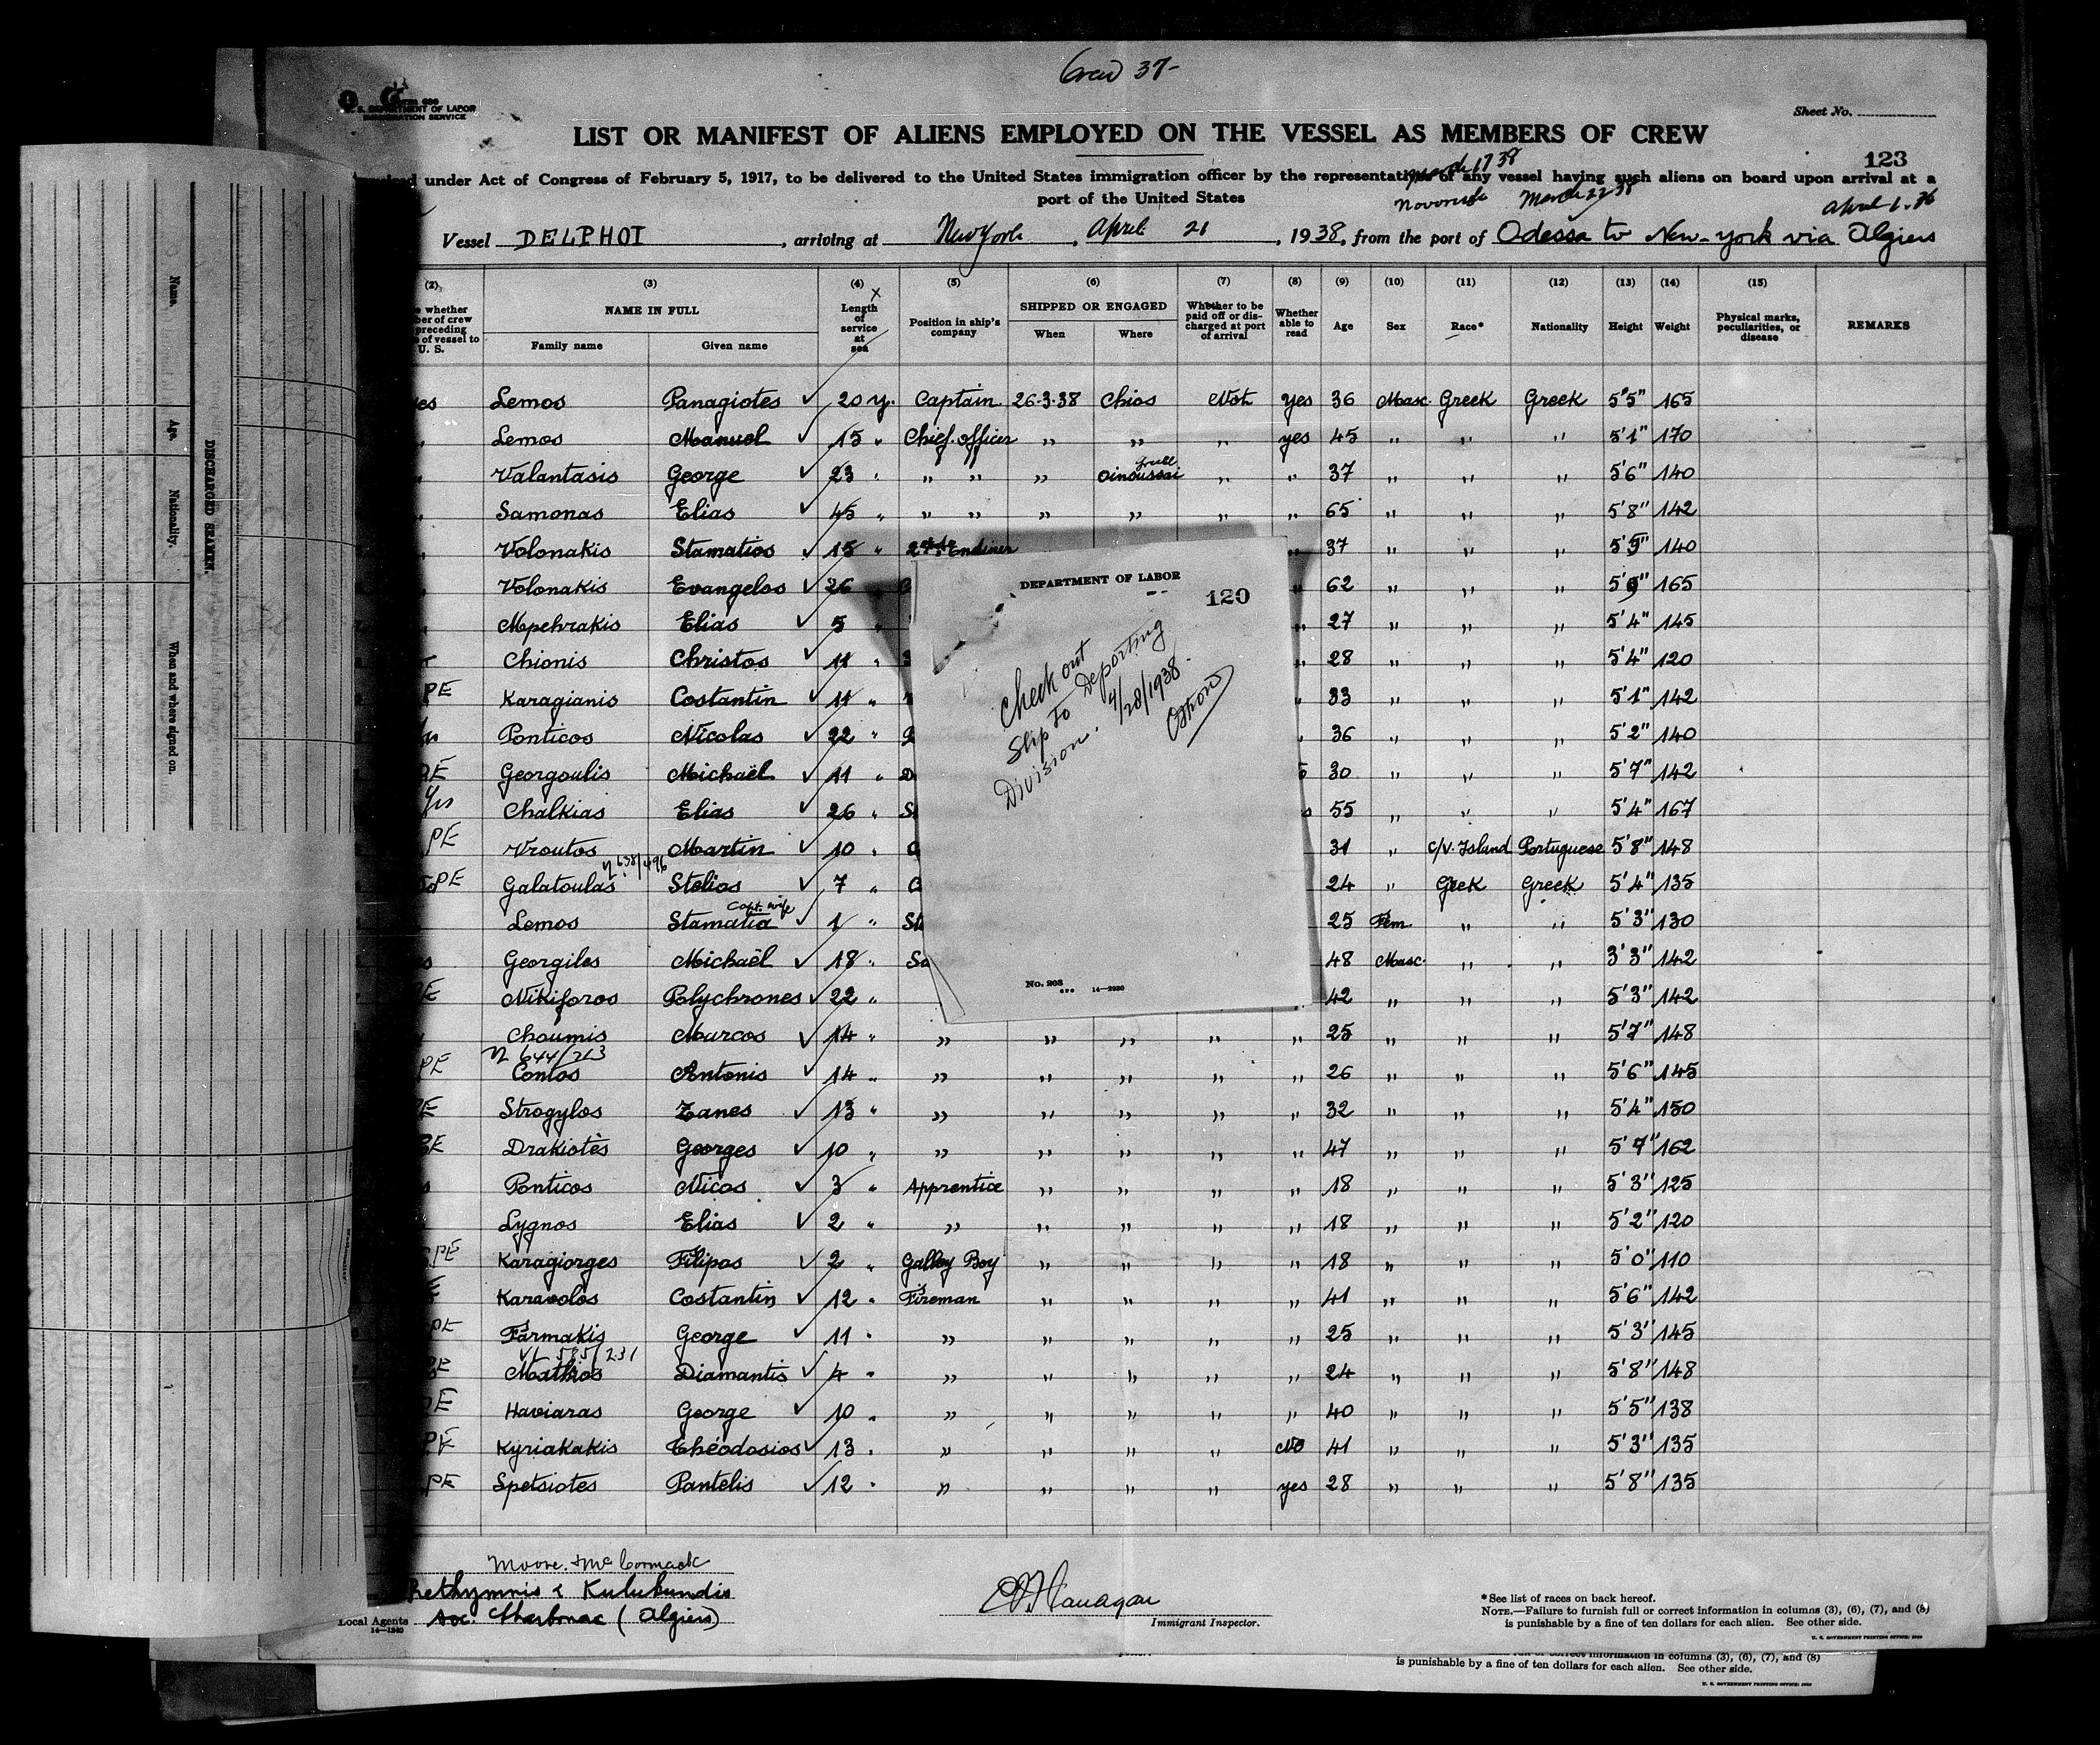 Crew 37-
U. S. DEPARTMENT OF LABOR
IMMIGRATION SERVICE
Sheet No.
LIST OR MANIFEST OF ALIENS EMPLOYED ON THE VESSEL AS MEMBERS OF CREW
123
under Act of Congress of February 5, 1917, to be delivered to the United States immigration officer by the representatives of any vessel having such aliens on board upon arrival at a
port of the United States
March 22 38
Vessel DELPHOI , arriving at New York , April 21 , 1938, from the port of Odessa to New-York via Algiers
(2) (3) (4) (5) (6) (7) (8) (9) (10) (11) (12) (13) (14) (15)
whether
NAME IN FULL
Family name Given name
Length of service at sea
Position in ship's company
SHIPPED OR ENGAGED
When Where
Whether to be paid off or discharged at port of arrival
Whether able to read
Age Sex Race* Nationality Height Weight
Physical marks, peculiarities, or disease
REMARKS
Lemos Panagiotes ✓ 20 y. Captain 26-3-38 Chios Not yes 36 Masc. Greek Greek 5'5" 165
Lemos Manuel ✓ 15 " Chief officer " " " yes 45 " " " 5'1" 170
Valantasis George ✓ 23 " " " " Oinoussai " " 37 " " " 5'6" 140
Samonas Elias ✓ 45 " " " " " " " 65 " " " 5'8" 142
Volonakis Stamatios ✓ 15 " " 37 " " " 5'9" 140
Volonakis Evangelos ✓ 26 " " 62 " " " 5'9" 165
Mpehrakis Elias ✓ 5 " " 27 " " " 5'4" 145
Chionis Christos ✓ 11 " " 28 " " " 5'4" 120
PE Karagianis Costantin ✓ 11 " " 33 " " " 5'1" 142
Ponticos Nicolas ✓ 22 " " 36 " " " 5'2" 140
Georgoulis Michaël ✓ 11 " 30 " " " 5'7" 142
Yes Chalkias Elias ✓ 26 " 55 " " " 5'4" 167
PE Vroutos Martin ✓ 10 " 31 " C/V. Island Portuguese 5'8" 148
PE Galatoulas Stelios ✓ 7 " 24 " Greek Greek 5'4" 135
Capt. wife
Lemos Stamatia ✓ 1 " 25 Fem. " " 5'3" 130
Georgiles Michaël ✓ 18 " 48 Masc. " " 3'3" 142
Nikiforos Polychrones ✓ 22 " 42 " " " 5'3" 142
Choumis Marcos ✓ 14 " " " " " " 25 " " " 5'7" 148
644/263
PE Contos Antonis ✓ 14 " " " " " " 26 " " " 5'6" 145
Strogylos Zanes ✓ 13 " " " " " " 32 " " " 5'4" 150
Drakiotès Georges ✓ 10 " " " " " " 47 " " " 5'7" 162
Ponticos Nicos ✓ 3 " Apprentice " " " " 18 " " " 5'3" 125
Lygnos Elias ✓ 2 " " " " " " 18 " " " 5'2" 120
PE Karagiorges Filipos ✓ 2 " Galley Boy " " " " 18 " " " 5'0" 110
Karavolos Costantin ✓ 12 " Fireman " " " " 41 " " " 5'6" 142
PE Farmakis George ✓ 11 " " " " " " 25 " " " 5'3" 145
585/231
Mathios Diamantis ✓ 4 " " " " " " 24 " " " 5'8" 148
Haviaras George ✓ 10 " " " " " " 40 " " " 5'5" 138
PE Kyriakakis Théodosios ✓ 13 " " " " " No 41 " " " 5'3" 135
PE Spetsiotes Pantelis ✓ 12 " " " " " yes 28 " " " 5'8" 135
DEPARTMENT OF LABOR
120
Check out
Slip to Deporting
Division. 4/28/1938
No. 208
14—2930
Moore. & McCormack
Rethymnis & Kulukundis
Local Agents Soc. (Algiers)
14—1240
Immigrant Inspector.
*See list of races on back hereof.
NOTE.—Failure to furnish full or correct information in columns (3), (6), (7), and (8)
is punishable by a fine of ten dollars for each alien. See other side.
U. S. GOVERNMENT PRINTING OFFICE
correct information in columns (3), (6), (7), and (8)
is punishable by a fine of ten dollars for each alien. See other side.
U. S. GOVERNMENT PRINTING OFFICE
DISCHARGED SEAMEN.
Name.
Age.
Nationality.
When and where signed on.